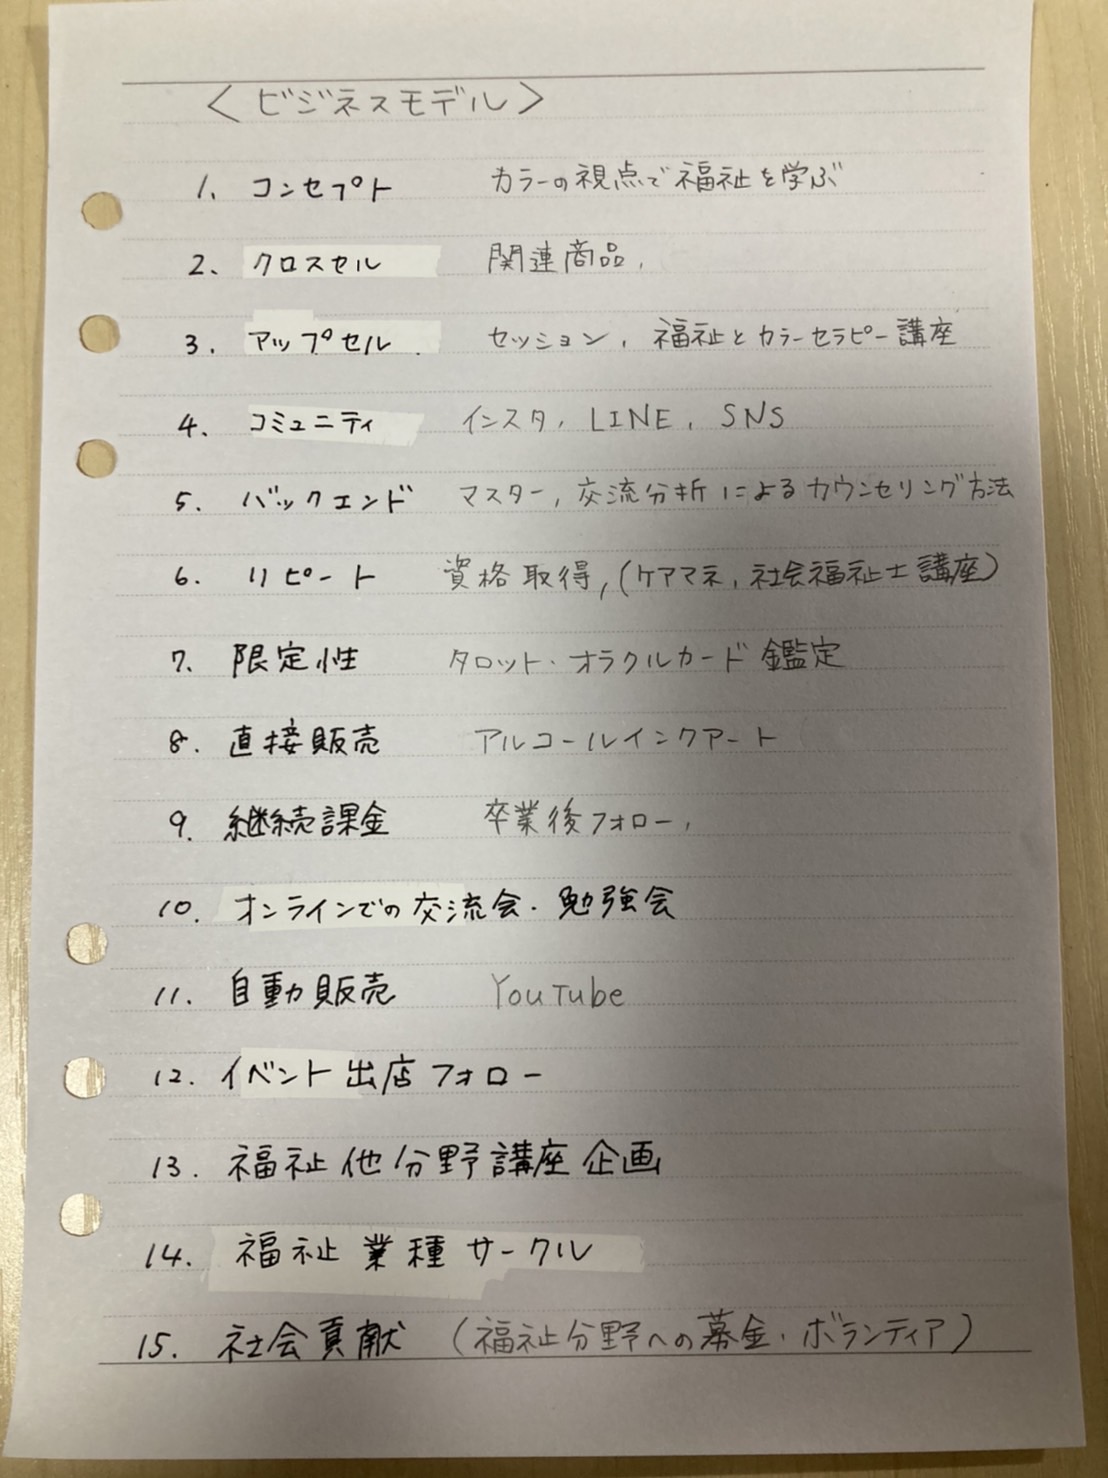 ＜ビジネスモデル＞
1. コンセプト カラーの視点で福祉を学ぶ
2. クロスセル 関連商品,
3. アップセル. セッション, 福祉とカラーセラピー講座
4. コミュニティ インスタ, LINE, SNS
5. バックエンド マスター, 交流分析によるカウンセリング方法
6. リピート 資格取得, (ケアマネ, 社会福祉士講座)
7. 限定性 タロット・オラクルカード鑑定
8. 直接販売 アルコールインクアート
9. 継続課金 卒業後フォロー,
10. オンラインでの交流会・勉強会
11. 自動販売 YouTube
12. イベント出店フォロー
13. 福祉他分野講座企画
14. 福祉業種サークル
15. 社会貢献 (福祉分野への募金・ボランティア)